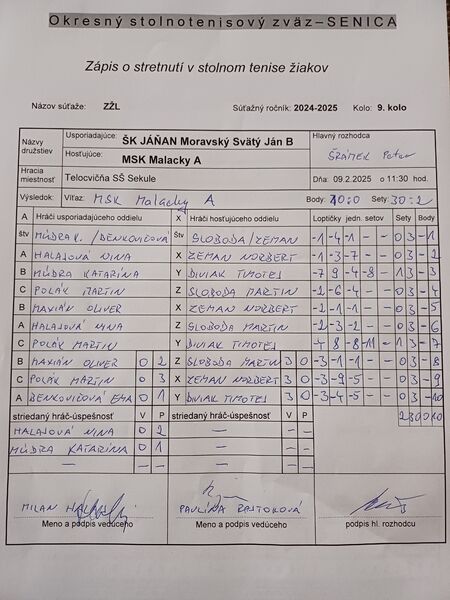 Okresný stolnotenisový zväz–SENICA
Zápis o stretnutí v stolnom tenise žiakov
Názov súťaže: ZŽL Súťažný ročník: 2024-2025 Kolo: 9. kolo
Názvy družstiev Usporiadajúce: ŠK JÁŇAN Moravský Svätý Ján B Hlavný rozhodca
Hosťujúce: MSK Malacky A ŠRÁMEK Peter
Hracia miestnosť Telocvičňa SŠ Sekule Dňa: 09.2.2025 o 11:30 hod.
Výsledok: Víťaz: MSK Malacky A Body: 10:0 Sety: 30:2
A Hráči usporiadajúceho oddielu X Hráči hosťujúceho oddielu Loptičky jedn. setov Sety Body
štv MÚDRA K. / BENKOVIČOVÁ Štv SLOBODA / ZEMAN -1 -4 -1 - - 0 3 -1
A HALAJOVÁ NINA X ZEMAN NORBERT -1 -3 -7 - - 0 3 -2
B MÚDRA KATARÍNA Y DIVIAK TIMOTEJ -7 9 -4 -8 - 1 3 -3
C POLÁK MARTIN Z SLOBODA MARTIN -2 -6 -4 - - 0 3 -4
B MAXIÁN OLIVER X ZEMAN NORBERT -1 -2 -1 - - 0 3 -5
A HALAJOVÁ NINA Z SLOBODA MARTIN -2 -3 -2 - - 0 3 -6
C POLÁK MARTIN Y DIVIAK TIMOTEJ -4 8 -8 -11 - 1 3 -7
B MAXIÁN OLIVER 0 2 Z SLOBODA MARTIN 3 0 -3 -1 -1 - - 0 3 -8
C POLÁK MARTIN 0 3 X ZEMAN NORBERT 3 0 -3 -9 -5 - - 0 3 -9
A BENKOVIČOVÁ EMA 0 1 Y DIVIAK TIMOTEJ 3 0 -3 -4 -5 - - 0 3 -10
striedaný hráč-úspešnosť V P striedaný hráč-úspešnosť V P 2 30 0 10
HALAJOVÁ NINA 0 2 — – –
MÚDRA KATARÍNA 0 1 — – –
— – – — – –
MILAN PAULÍNA
Meno a podpis vedúceho Meno a podpis vedúceho podpis hl. rozhodcu